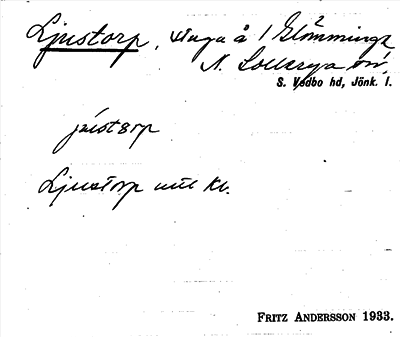 Ljustorp, stuga å 1 Glömminge
N. Solberga sn.
S. Vedbo hd, Jönk. l.
jústorp
Ljustorp utt Kv.
FRITZ ANDERSSON 1933.